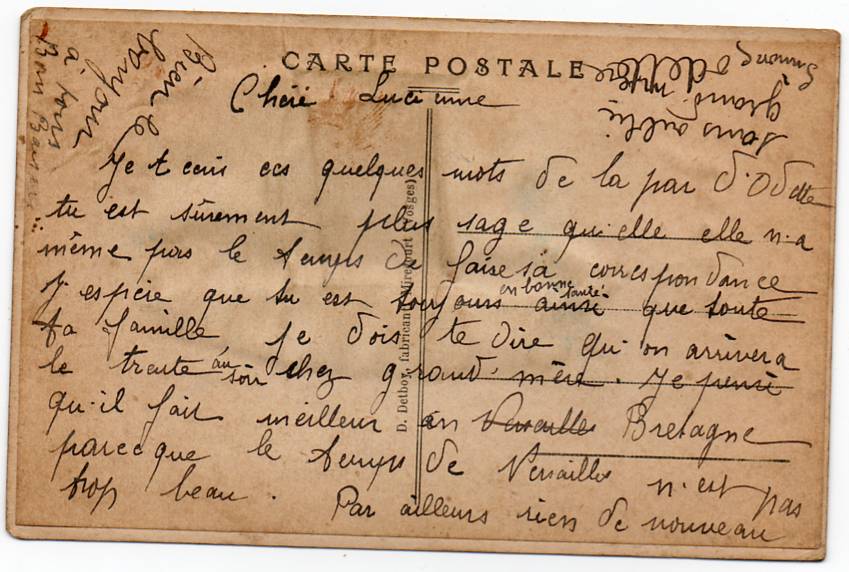 CARTE POSTALE
Chéré Lucienne
Je t ecris ces quelques mots de la par d'Odette
tu est sûrement plus sage qu'elle elle n.a
même pas le temps de faire sa correspondance
J. espère que tu est toujours en bonne santé ainsi que toute
ta famille je dois te dire qu'on arrivera
le trente au soir chez grand' mère. Je pense
qu'il fait meilleur en Versailles Bretagne
parceque le temps de Versailles n'est pas
trop beau. Par ailleurs rien de nouveau
Bien le
bonjour
à tous
Bon Baiser
sans oublié
grand mère
Odette
D. Detboy, fabricant, Mirecourt (Vosges)